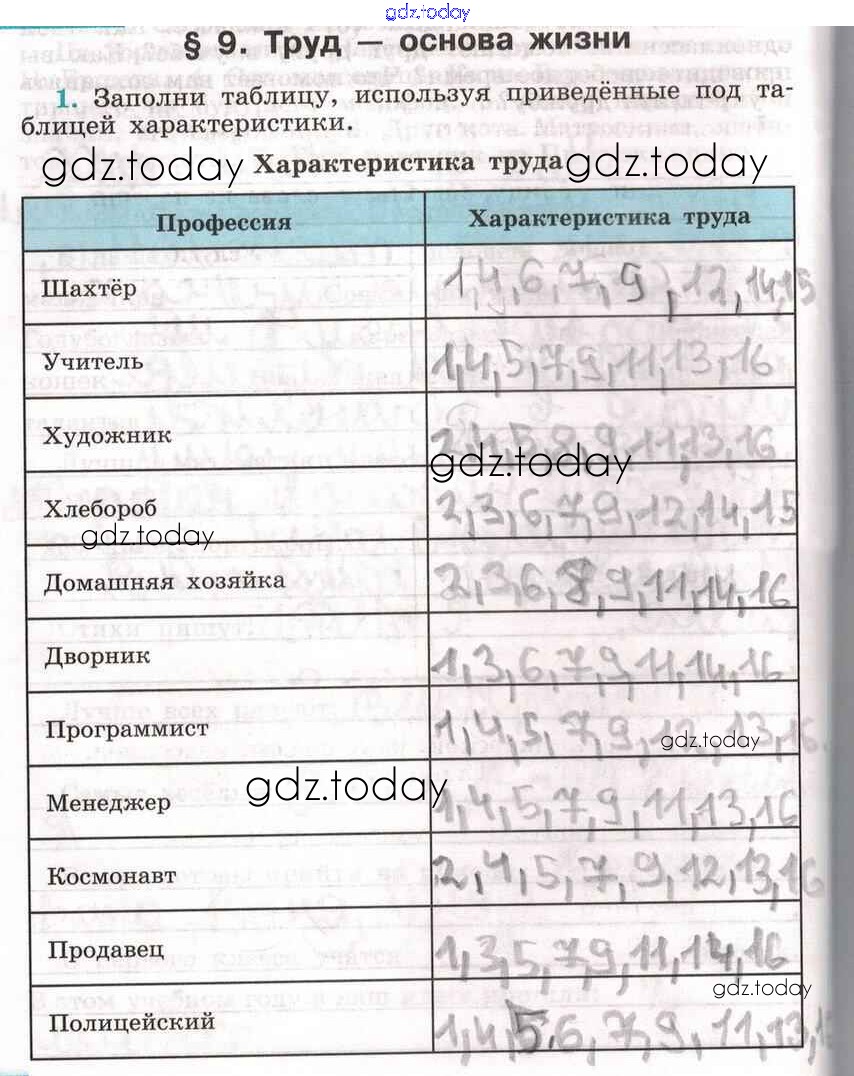 gdz.today
§ 9. Труд — основа жизни
1. Заполни таблицу, используя приведённые под та-
блицей характеристики.
gdz.today Характеристика труда gdz.today
Профессия Характеристика труда
Шахтёр 1,4,6,7,9,12,14,15
Учитель 1,4,5,7,9,11,13,16
Художник 2,4,5,8,9,11,13,16
gdz.today
Хлебороб 2,3,6,7,9,12,14,15
gdz.today
Домашняя хозяйка 2,3,6,8,9,11,14,16
Дворник 1,3,6,7,9,11,14,16
Программист 1,4,5,7,9,12,13,16
gdz.today
Менеджер 1,4,5,7,9,11,13,16
gdz.today
Космонавт 2,4,5,7,9,12,13,16
Продавец 1,3,5,7,9,11,14,16
gdz.today
Полицейский 1,4,5,6,7,9,11,13,